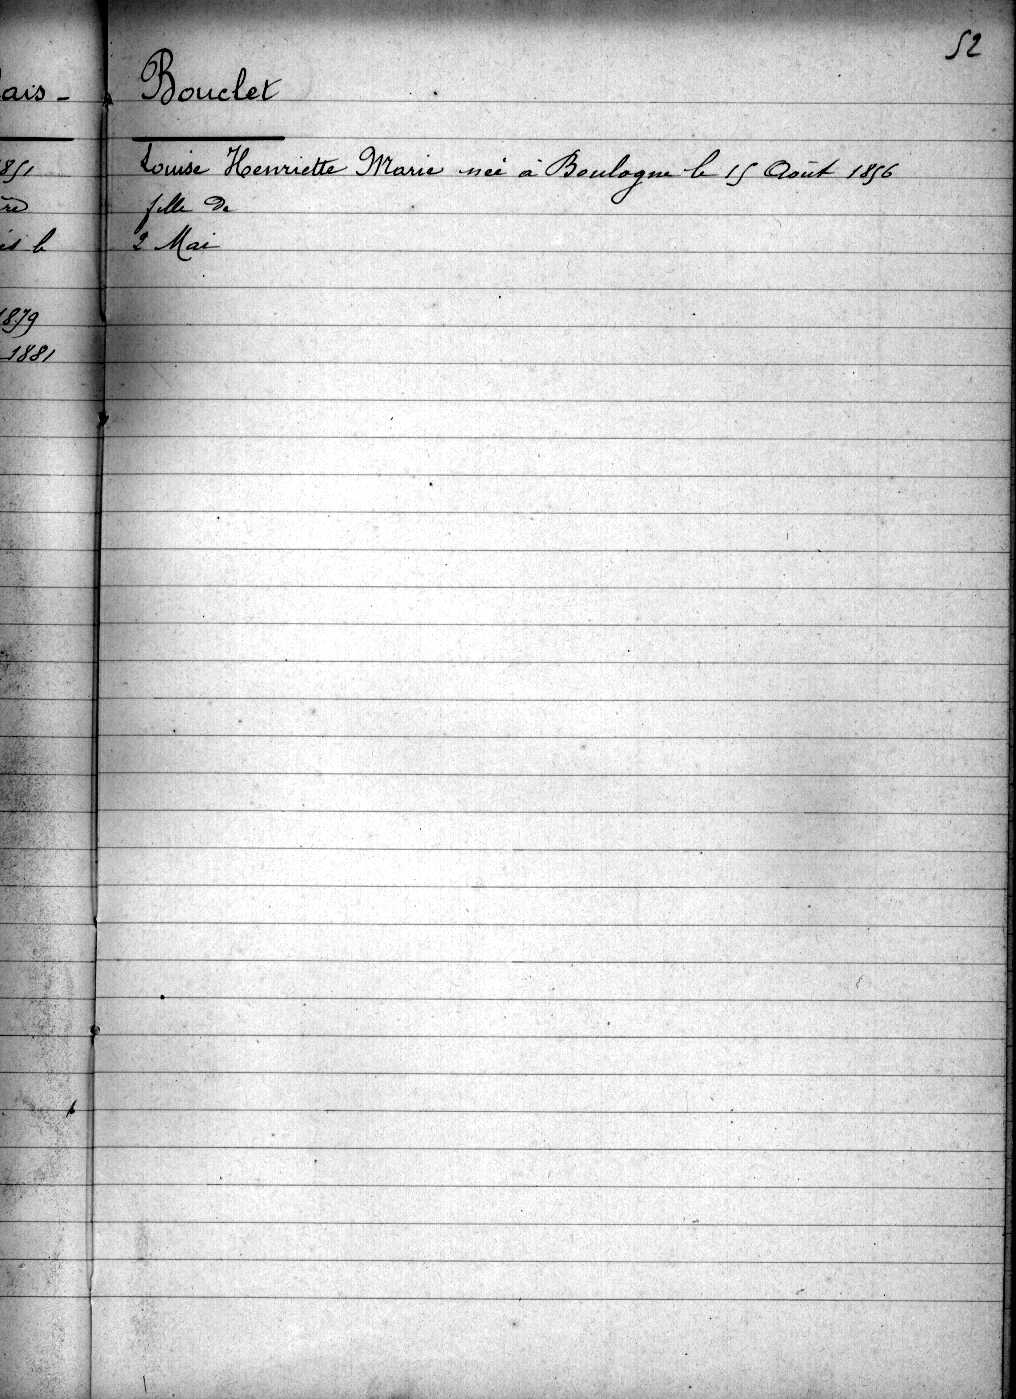 52
ais -
Bouclet
851
Louise Henriette Marie née à Boulogne le 15 Août 1856
fille de
is le
2 Mai
1879
1881